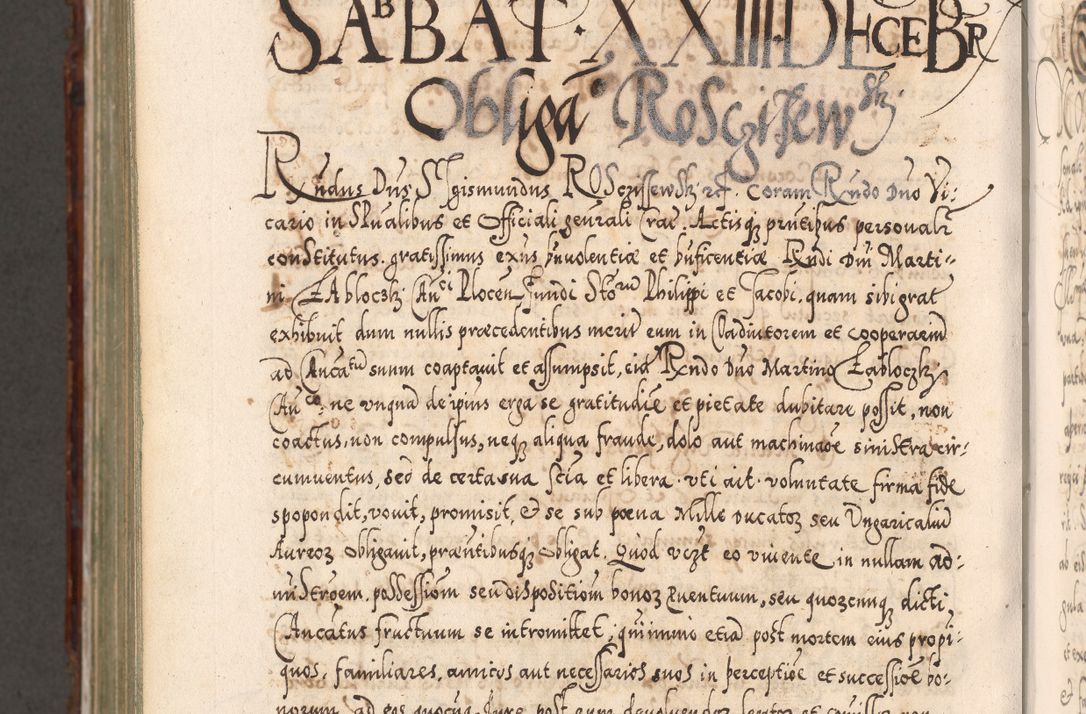 SABBAT · XXIII · DECEBR
Obligaō Rosczissewsky
Rndus Dns Sigismundus Rosczissewsky rcz. coram Rndo Dno Vi:
cario in Spualibus et Officiali genrali Crac. Actisq pntibus personalr
constitutus, gratissimus exns bnvolentiæ et bnficentiæ Rndi Dni Marti=
ni Zabloczky Canci Plocen fundi Storum Philippi et Jacobi, quam sibi grat
exhibuit dum nullis præcedentibus meritis eum in Coadiutorem et cooperaem
ad Cancatum suum coaptauit et assumpsit, eid Rndo Dno Martino Zabloczky
Canco, ne vnqua de ipius erga se gratitudie et pietate dubitare possit, non
coactus, non compulsus, neq aliqua fraude, dolo aut machinaoe sinistra cir:
cumuentus, sed de certa sua scia et libera vti ait voluntate firma fide
spopondit, vouit, promisit, & se sub poena Mille ducatoz seu Vngaricaliu
Aureoz obligauit, præntibusq obligat. Quod vczt eo viuente in nullam ad:
nistroem, possessiom seu dispositiom bonoz Quentuum, seu quozcunq dicti,
Cancatus fructuum se intromittet, quinimio etia post mortem eius propi:
quos, familiares, amicos aut necessarios suos in perceptioe et successioe bo:
norum ad eos quocuq Jure post eum